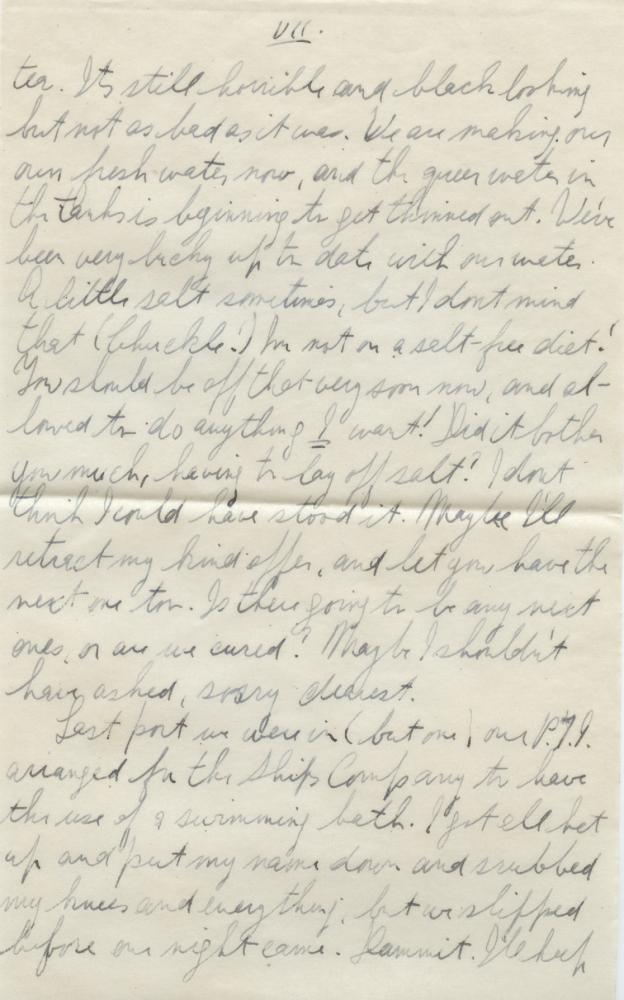 VII.
tea. Its still horrible and black looking
but not as bad as it was. We are making our
own fresh water now, and the queer water in
the tanks is beginning to get thinned out. We've
been very lucky up to date with our water.
A little salt sometimes, but I dont mind
that (Chuckle!) Im not on a salt-free diet!
You should be off that very soon now, and al-
lowed to do anything I want! Did it bother
you much, having to lay off salt? I dont
think I could have stood it. Maybe I'll
retract my kind offer, and let you have the
next one too. Is there going to be any next
ones, or are we cured? Maybe I shouldn't
have asked, sorry dearest.
Last port we were in (but one) our P.T.I.
arranged for the Ships Company to have
the use of a swimming bath. I got all het
up and put my name down and scrubbed
my knees and everything, but we slipped
before our night came. Dammit. I'll keep